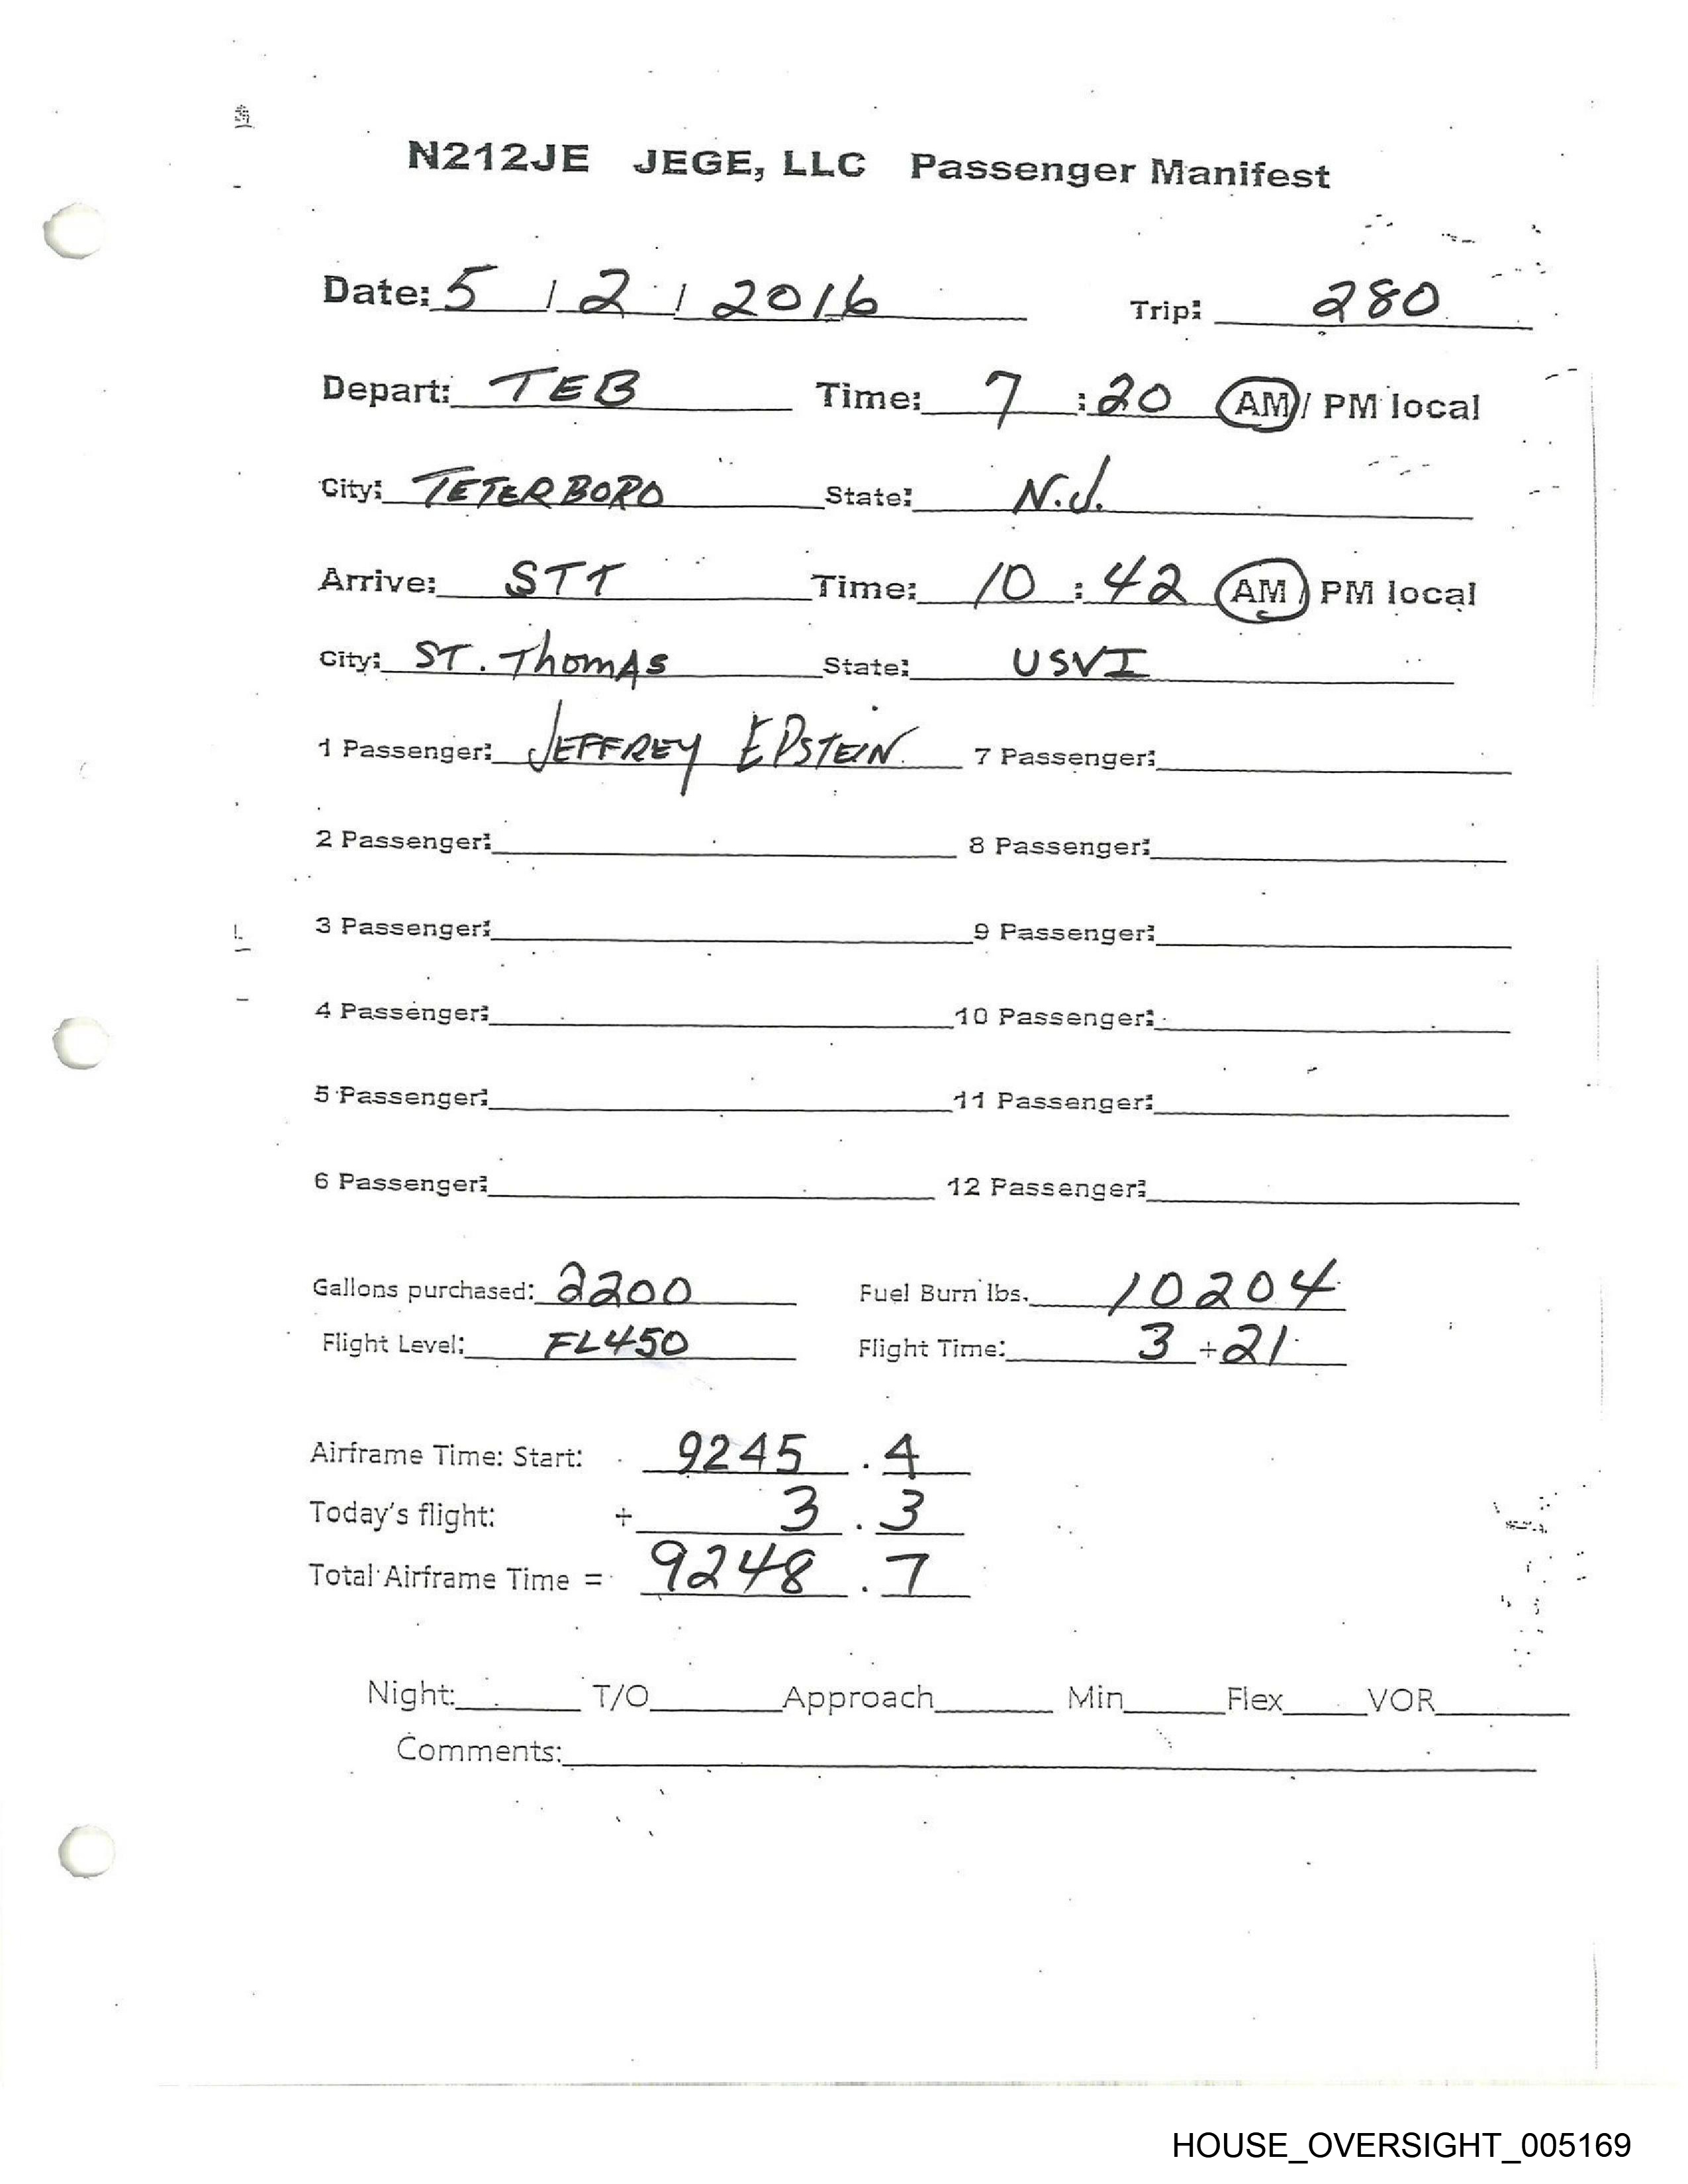 N212JE JEGE, LLC Passenger Manifest
Date: 5 / 2 / 2016 Trip: 280
Depart: TEB Time: 7 : 20 AM / PM local
City: TETERBORO State: N.J.
Arrive: STT Time: 10 : 42 AM / PM local
City: ST. Thomas State: USVI
1 Passenger: JEFFREY EPSTEIN 7 Passenger:
2 Passenger: 8 Passenger:
3 Passenger: 9 Passenger:
4 Passenger: 10 Passenger:
5 Passenger: 11 Passenger:
6 Passenger: 12 Passenger:
Gallons purchased: 2200 Fuel Burn lbs. 10204
Flight Level: FL450 Flight Time: 3 + 21
Airframe Time: Start: 9245 . 4
Today's flight: + 3 . 3
Total Airframe Time = 9248 . 7
Night: T/O Approach Min Flex VOR
Comments:
HOUSE_OVERSIGHT_005169